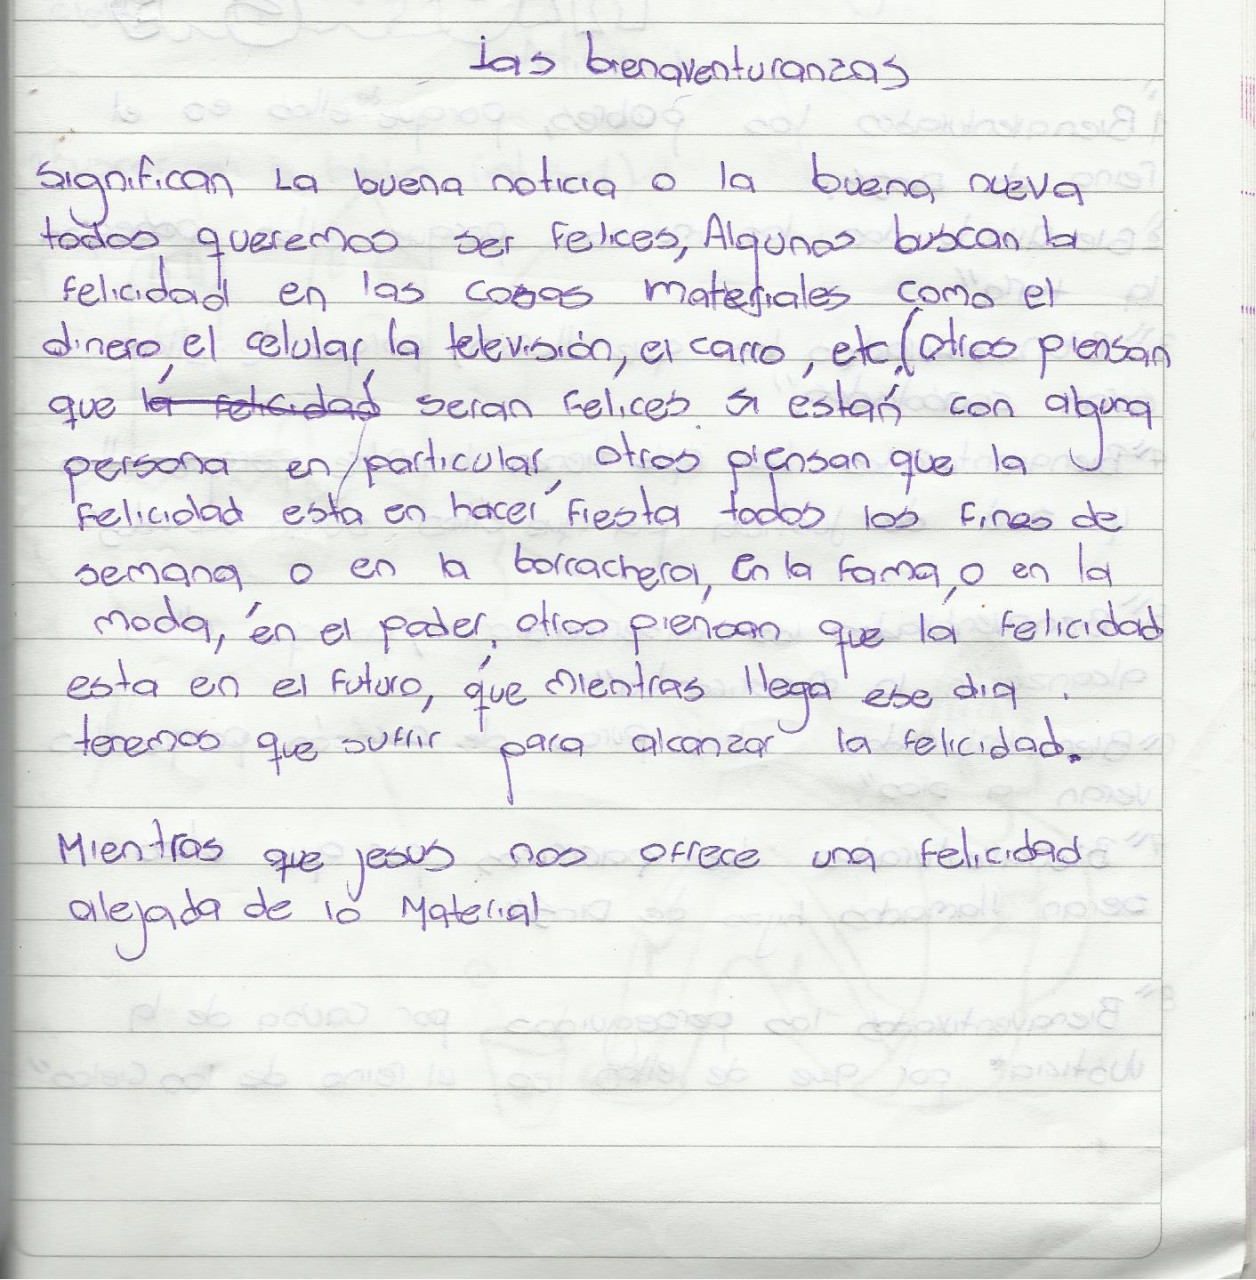 Las bienaventuranzas
significan La buena noticia o la buena nueva
todos queremos ser felices, Algunos buscan la
felicidad en las cosas materiales como el
dinero, el celular, la televisión, el carro, etc, otros piensan
que la felicidad seran felices si están con alguna
persona en particular, otros piensan que la
felicidad esta en hacer fiesta todos los fines de
semana o en la borrachera, en la fama, o en la
moda, en el poder, otros piensan que la felicidad
esta en el futuro, que mientras llega ese dia
tenemos que sufrir para alcanzar la felicidad.
Mientras que jesus nos ofrece una felicidad
alejada de lo Material